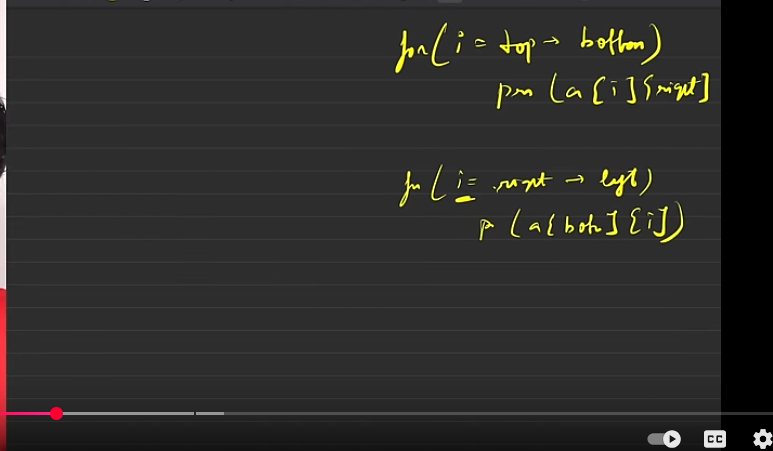 for(i = top → bottom)
prn (a[i][right]
for(i = right → left)
p (a[bottom][i])
CC